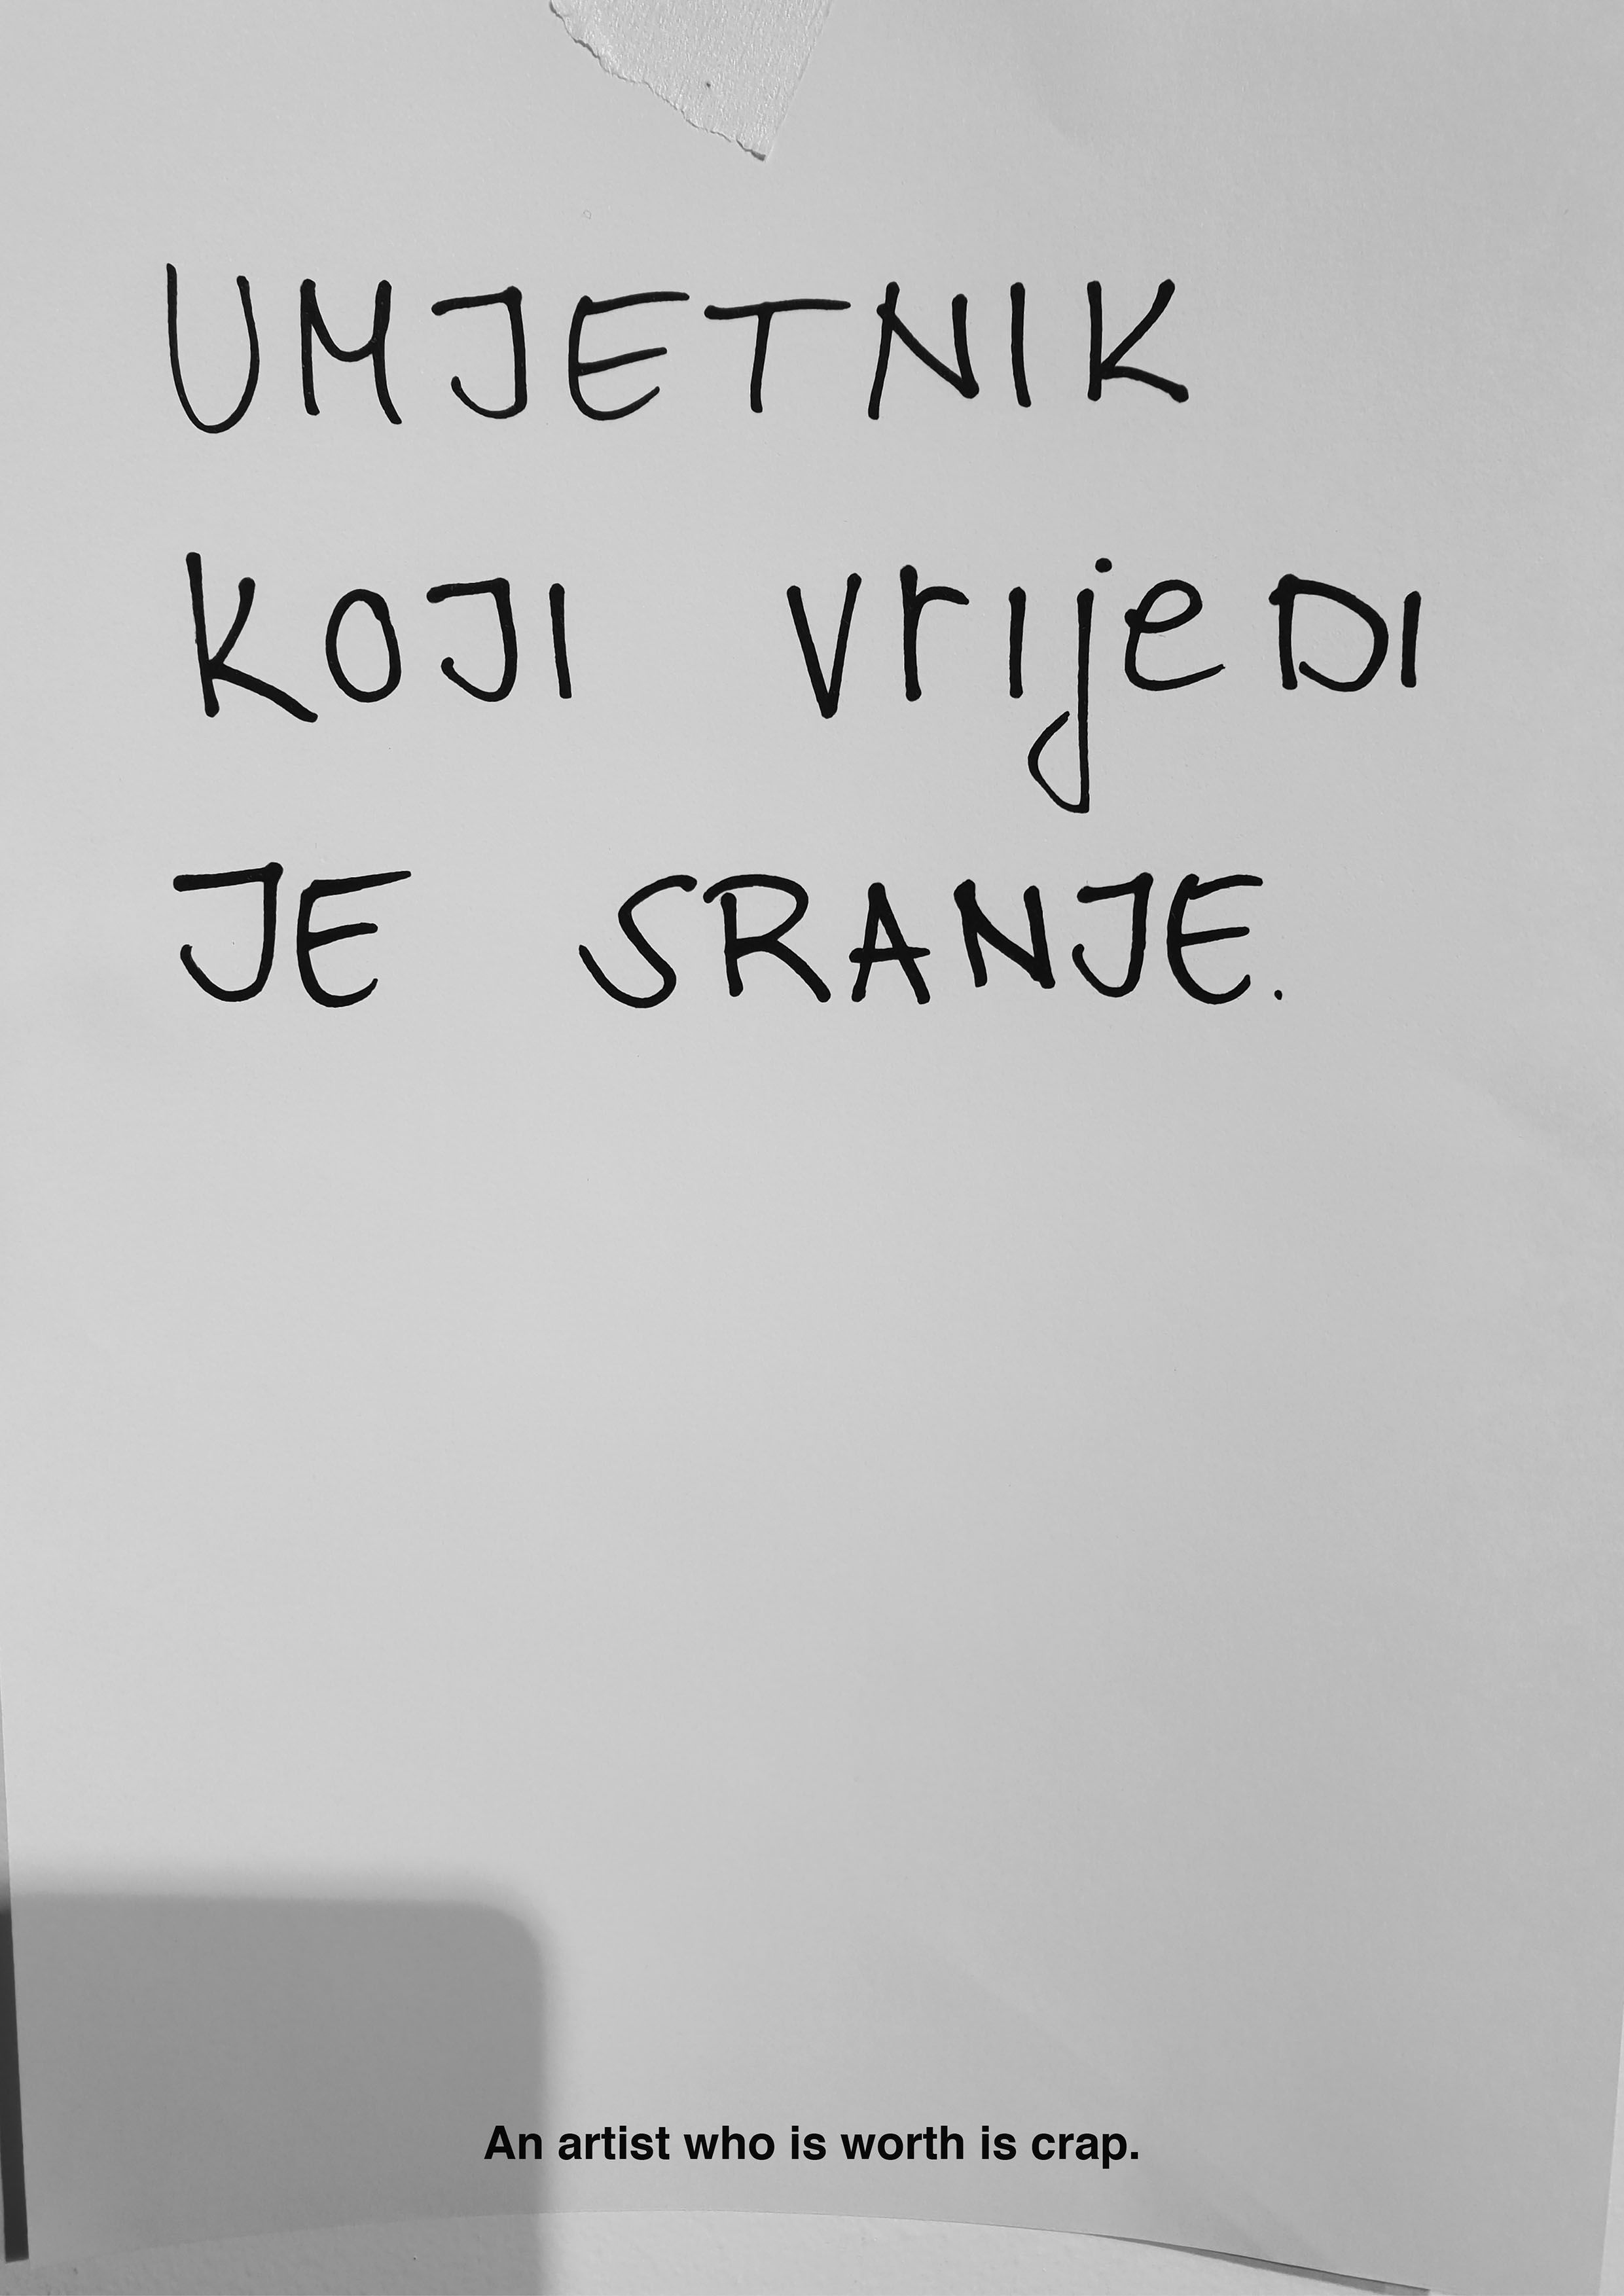 UMJETNIK
KOJI vrijeDI
JE SRANJE.
An artist who is worth is crap.